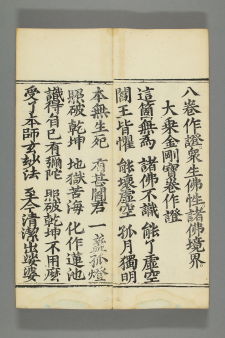 八卷作證衆生佛性諸佛境界
大乘金剛寶卷作證
這箇無為 諸佛不識 能了虛空
閻王皆懼 能壞虛空 孤月獨明
本無生死 有甚閻君 一盞孤燈
照破乾坤 地獄苦海 化作蓮池
識得自己有彌陀 照破乾坤不用麽
受了本師玄妙法 至今清潔出娑婆